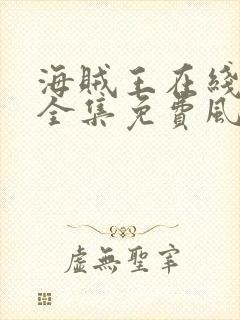 海贼王在线
全集免費風
虛無聖宰